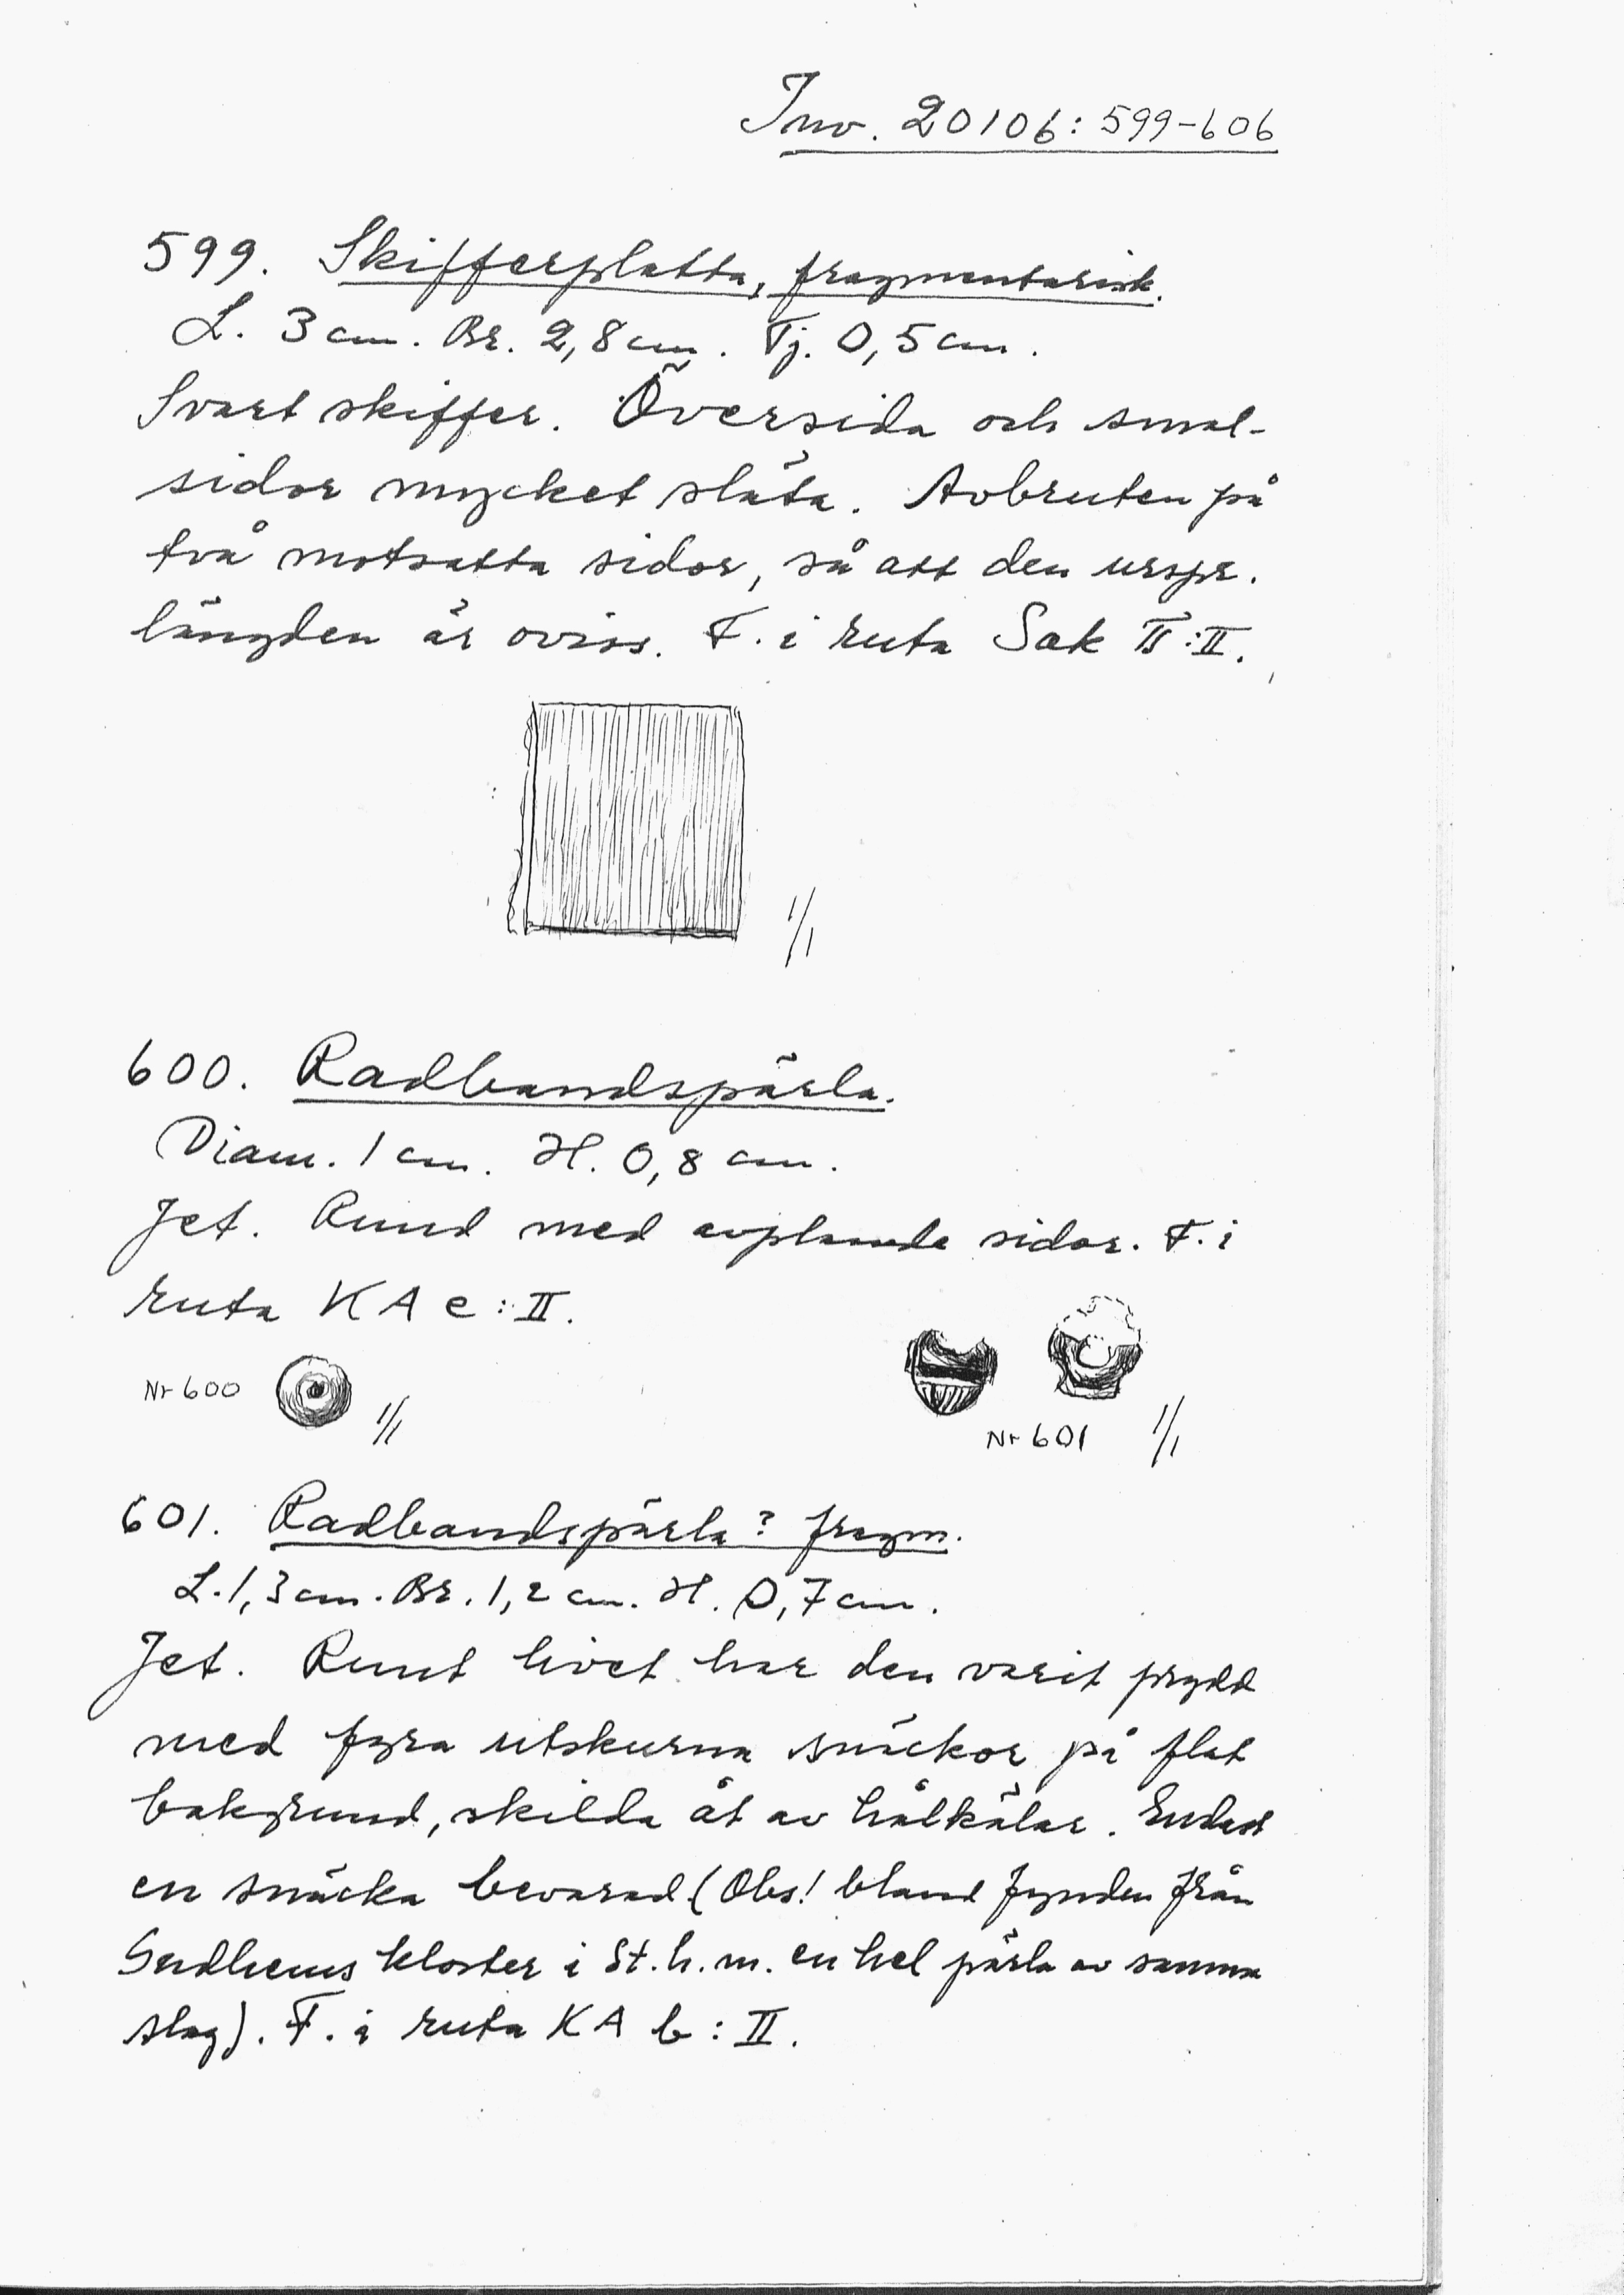 Inv. 20106: 599-606
599. Skifferplatta, fragmentarisk.
L. 3 cm. Br. 2,8 cm. Tj. 0,5 cm.
Svart skiffer. Översida och smal-
sidor mycket släta. Avbruten på
två motsatta sidor, så att den urspr.
längden är oviss. F. i ruta Sak II:II.
1/1
600. Radbandspärla.
Diam. 1 cm. H. 0,8 cm.
Jet. Rund med avplanade sidor. F. i
ruta KA e:II.
Nr 600 1/1
Nr 601 1/1
601. Radbandspärla? fragm.
L. 1,3 cm. Br. 1,2 cm. H. 0,7 cm.
Jet. Runt livet har den varit prydd
med fyra utskurna snäckor på flat
bakgrund, skilda åt av hålkälar. Endast
en snäcka bevarad (Obs! bland fynden från
Gudhems kloster i St. h. m. en hel pärla av samma
slag). F. i ruta KA b:II.